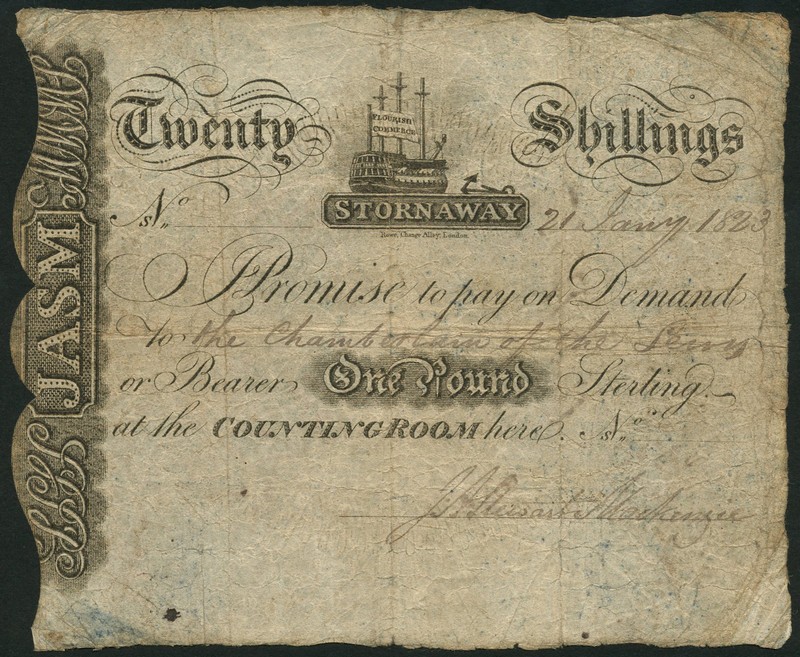 Twenty Shillings
FLOURISH
COMMERCE
STORNAWAY
No. 21 Jany 1823
Rowe, Change Alley, London
JASM
I Promise to pay on Demand
to the Chamberlain of the Lewis
or Bearer One Pound Sterling
at the COUNTING ROOM here. No.
J A Stewart Mackenzie